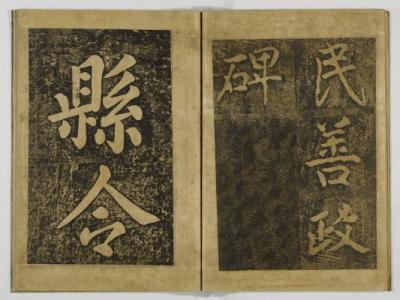 民善政
碑
縣令